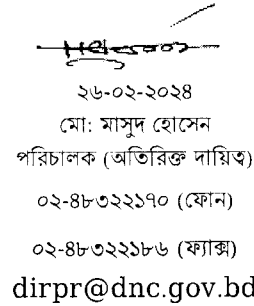 ২৬-০২-২০২৪
মো: মাসুদ হোসেন
পরিচালক (অতিরিক্ত দায়িত্ব)
০২-৪৮৩২২১৭০ (ফোন)
০২-৪৮৩২২১৮৬ (ফ্যাক্স)
dirpr@dnc.gov.bd